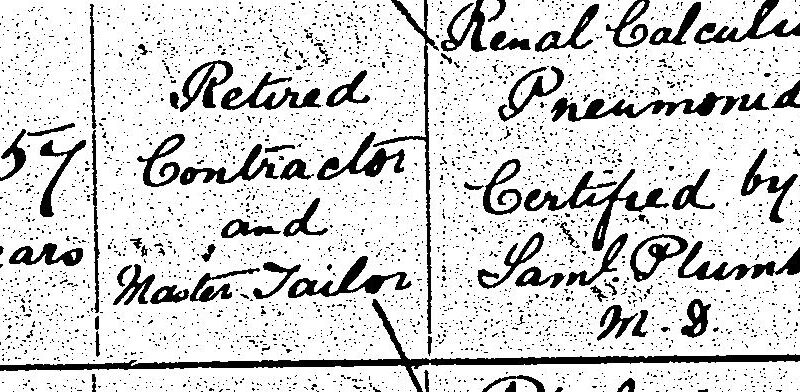 57
ears
Retired
Contractor
and
Master Tailor
Renal Calculu
Pneumonia
Certified by
Saml. Plumb
M. D.